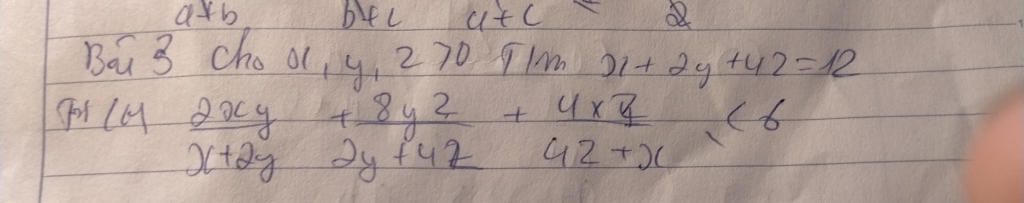 a+b b+c a+c 2
Bài 3 Cho x, y, z >0 T/m x + 2y + 4z = 12
2xy / x+2y + 8yz / 2y+4z + 4xz / 4z+x < 6